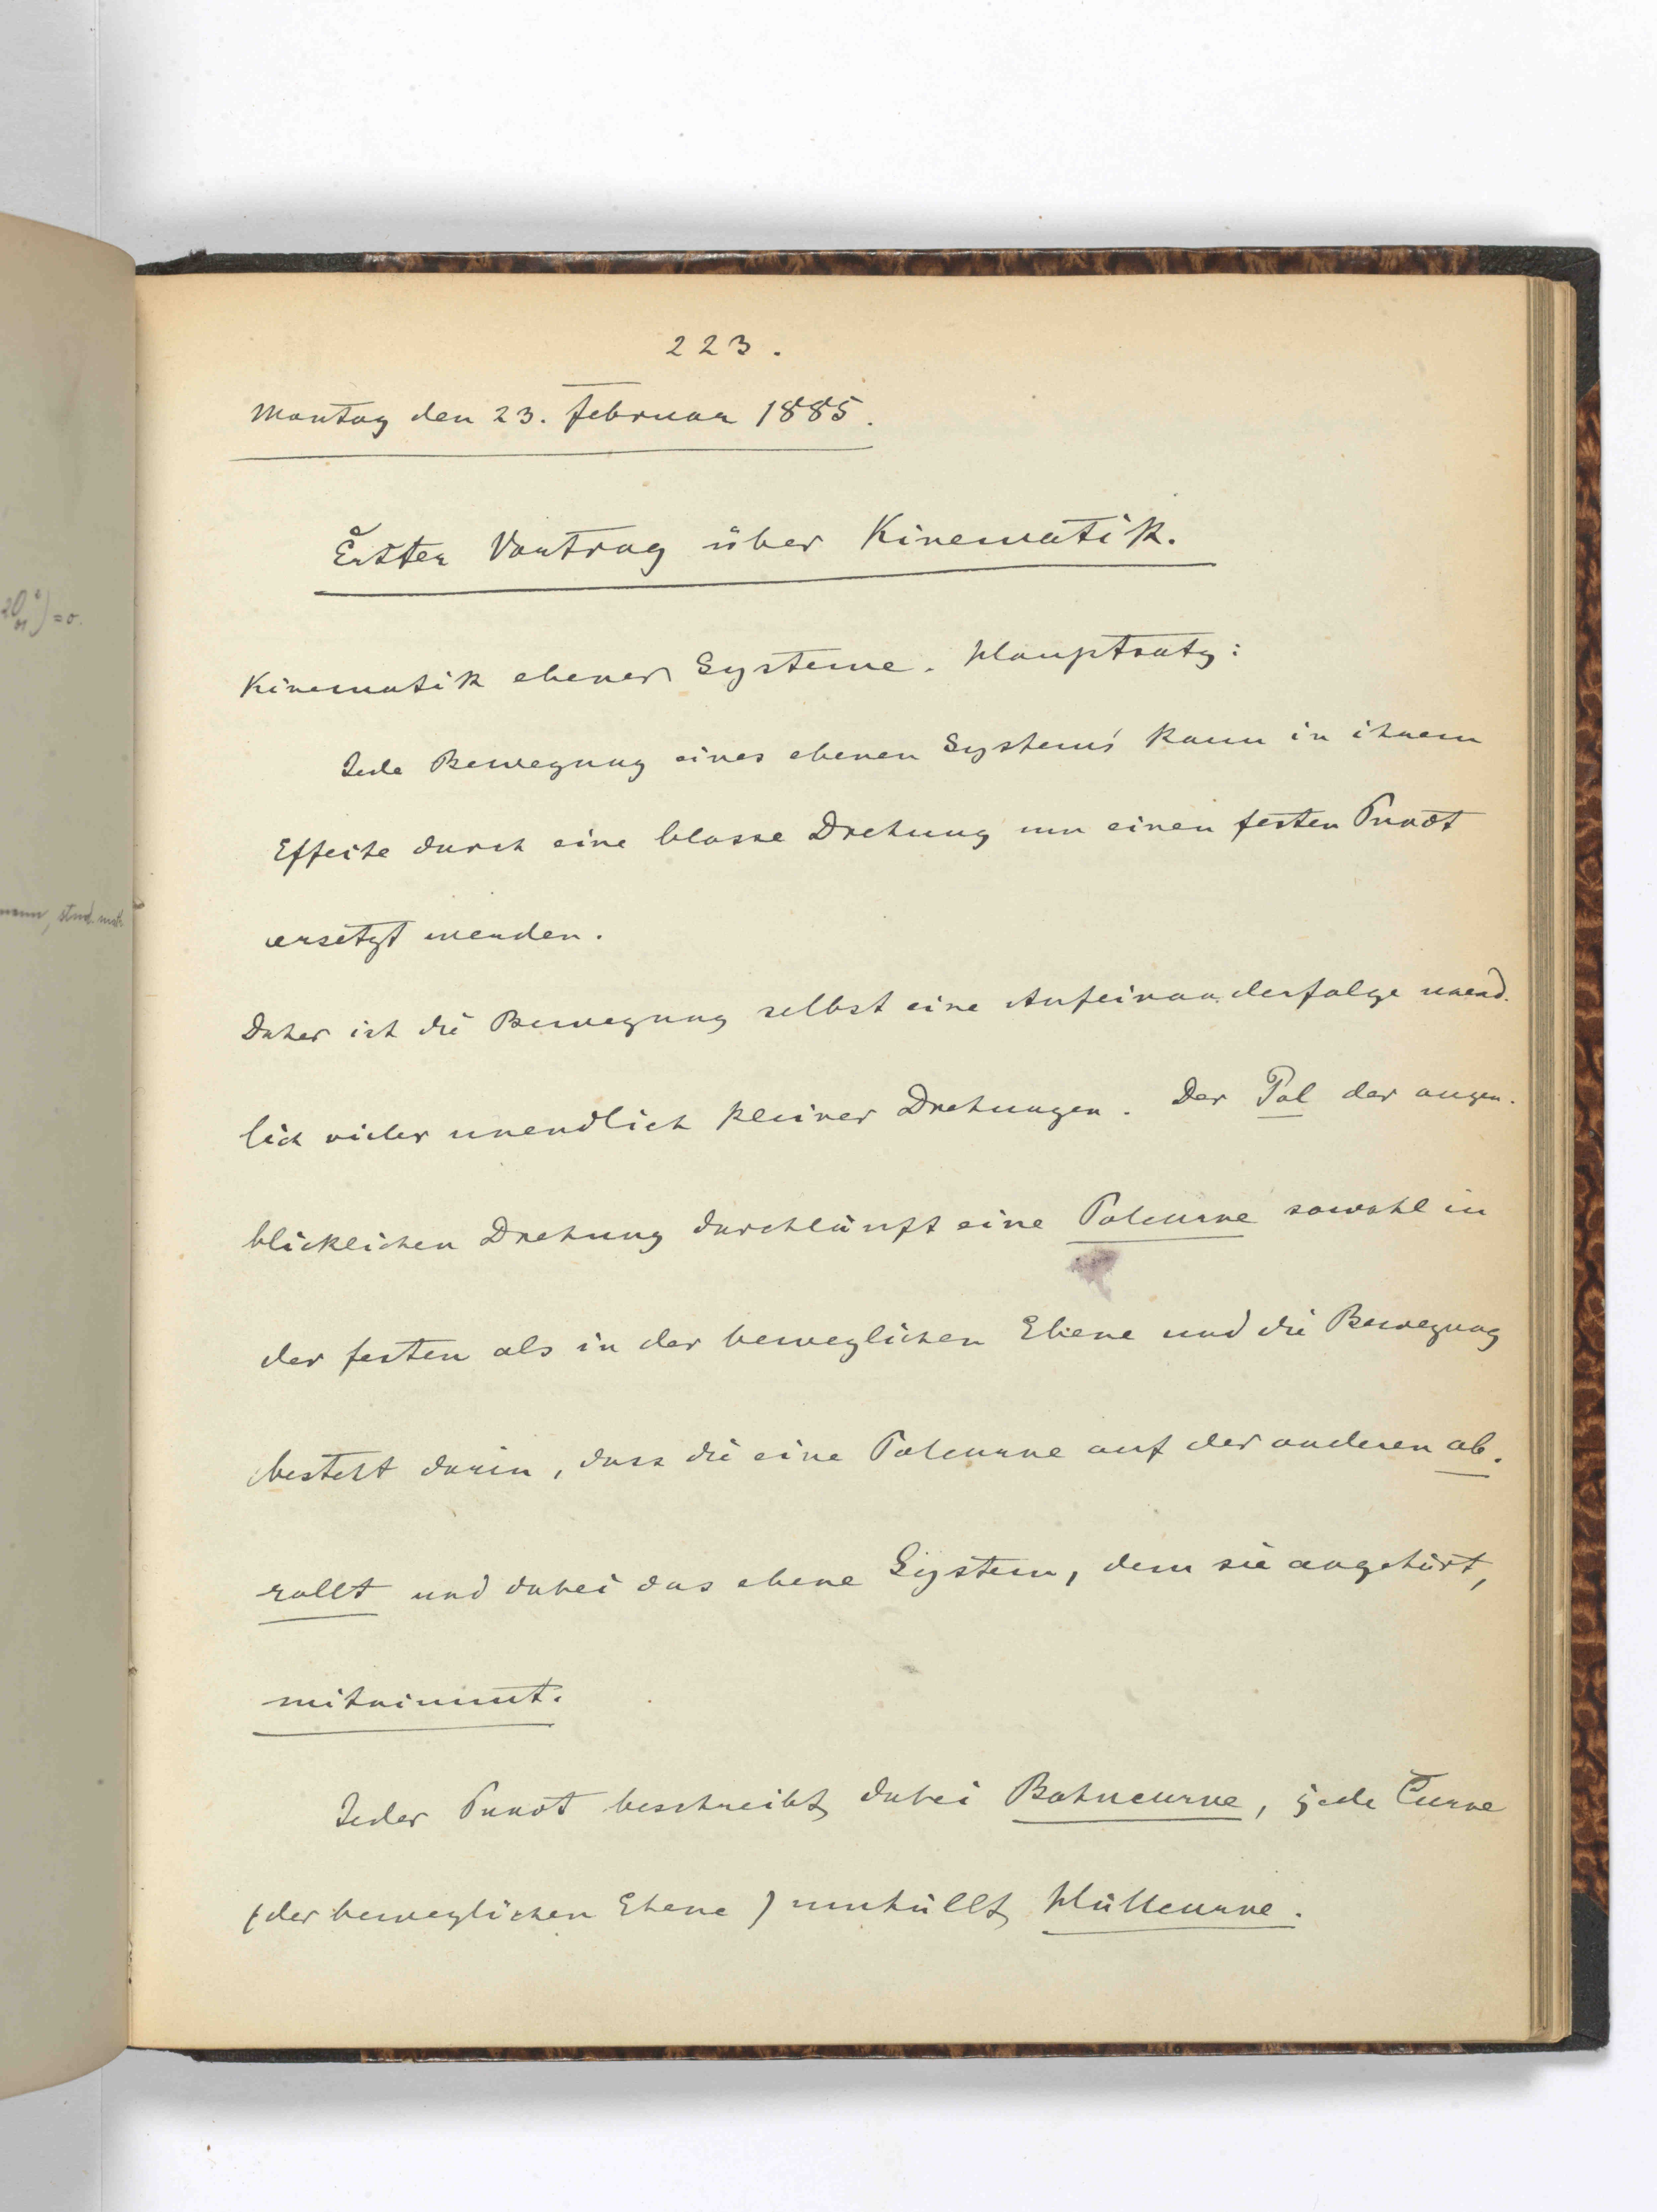 223.
Montag den 23. Februar 1885.
Erster Vortrag über Kinematik.
Kinematik ebener Systeme. Hauptsatz:
Jede Bewegung eines ebenen Systems kann in ihrem
Effecte durch eine blosse Drehung um einen festen Punct
ersetzt werden.
Daher ist die Bewegung selbst eine Aufeinanderfolge unend-
lich vieler unendlich kleiner Drehungen. Der Pol der augen-
blicklichen Drehung durchläuft eine Polcurve sowohl in
der festen als in der beweglichen Ebene und die Bewegung
besteht darin, dass die eine Polcurve auf der anderen ab-
rollt und dabei das ebene System, dem sie angehört,
mitnimmt.
Jeder Punct beschreibt dabei Bahncurve, jede Curve
(der beweglichen Ebene) umhüllt Hüllcurve.
=0.
mann, stud. math